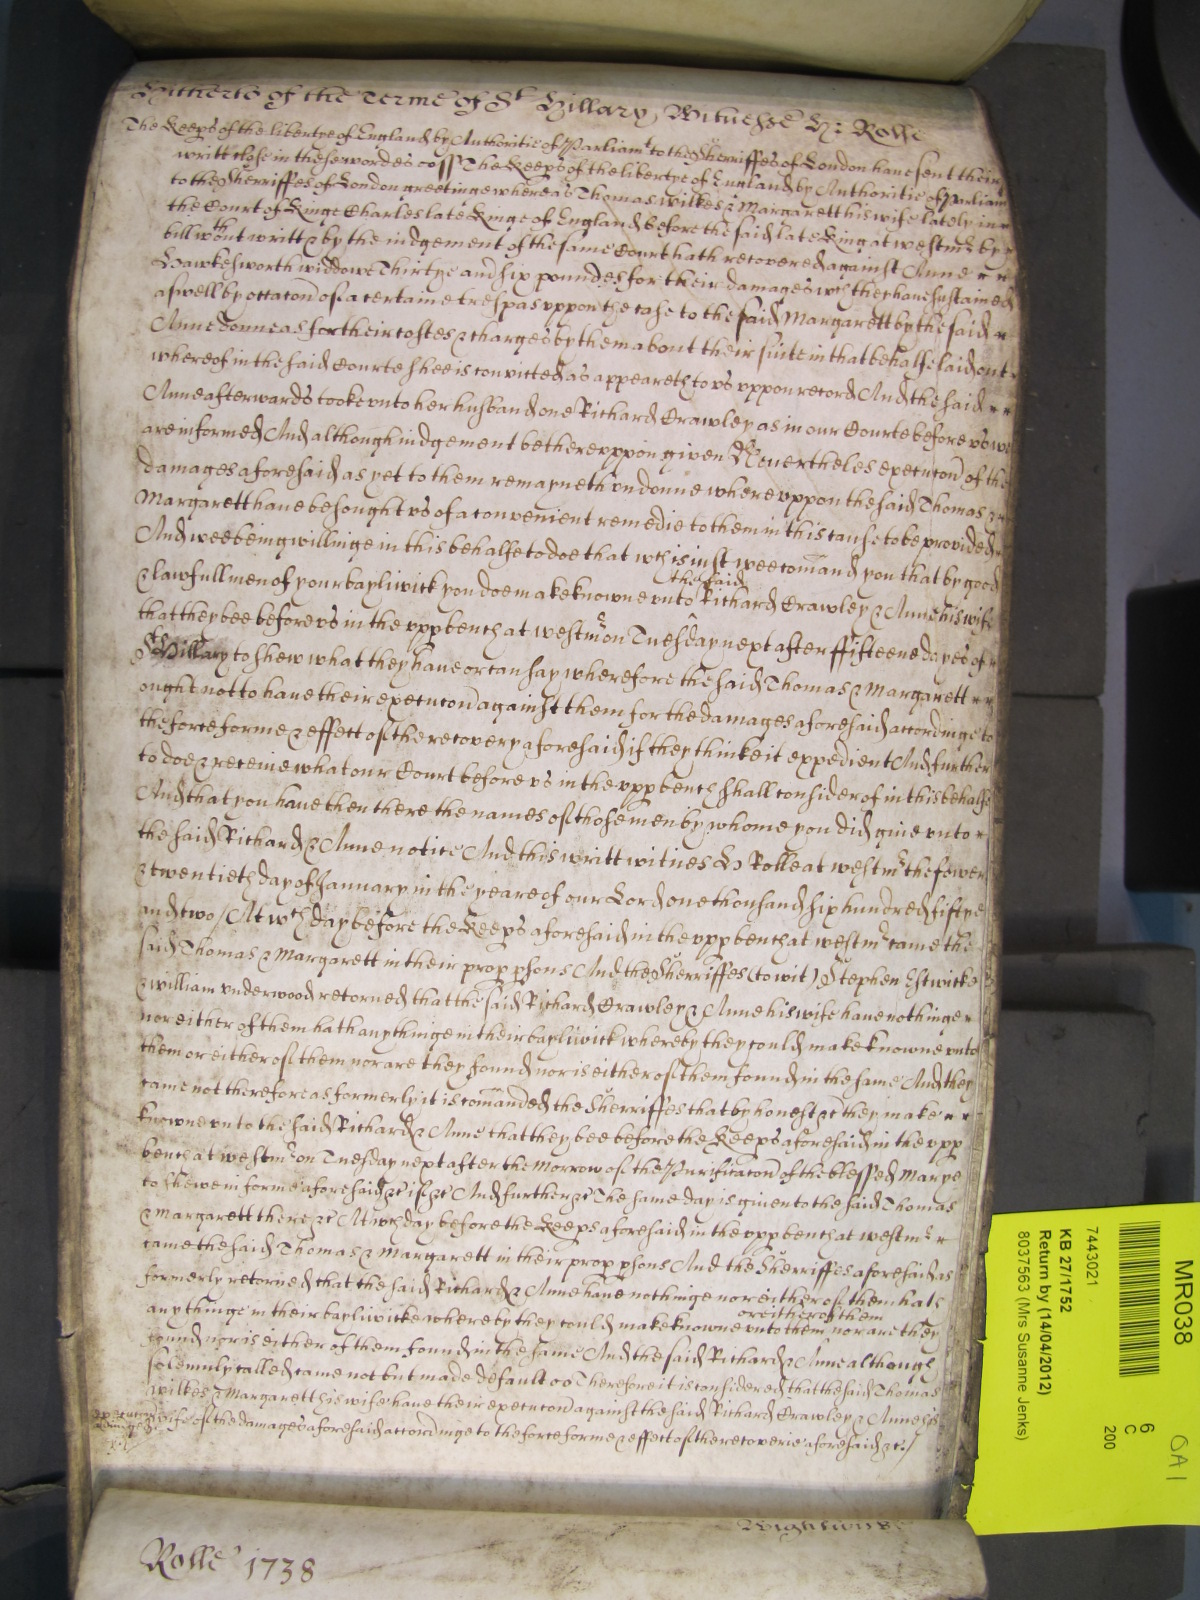 Matters of the Terme of St Hillary, Witnesse H: Rolle
The Keeps of the libertye of England by Authoritie of Parliamt to the Sherriffes of London have sent their
writt close in these wordes ss The Keeps of the libertye of England by Authoritie of Parliamt
to the Sherriffes of London greetinge whereas Thomas wilkes & Margarett his wife lately in
the Court of Kinge Charles late Kinge of England before the said late King at westmr by
bill wthout writt & by the iudgement of the same Court hath recovered against Anne
Hawkesworth widdowe Thirtye and six poundes for their damages wch they have sustained
aswell by occacon of a certaine trespas uppon the case to the said Margarett by the said
Anne donne as for their costes & charges by them about their suite in that behalfe laid out
whereof in the said Courte shee is convicted as appeareth to us uppon record And the said
Anne afterwards tooke unto her husband one Richard Crawley as in our Courte before us we
are informed And although iudgement be thereuppon given Nevertheles execucon of the
damages aforesaid as yet to them remayneth undonne whereuppon the said Thomas &
Margarett have besought us of a convenient remedie to them in this cause to be provided
And wee being willinge in this behalfe to doe that wch is iust wee comand you that by good
& lawfull men of your bayliwick you doe make knowne unto the said Richard Crawley & Anne his wife
that they bee before us in the upp bench at westmr on Tuesday next after fifteene dayes of
St Hillary to shew what they have or can say wherefore the said Thomas & Margarett
ought not to have their execucon against them for the damages aforesaid accordinge to
the force forme & effect of the recovery aforesaid if they thinke it expedient And further
to doe & receive what our Court before us in the upp bench shall consider of in this behalfe
And that you have then there the names of those men by whome you did give unto
the said Richard & Anne notice And this writt witnes H Rolle at westmr the fower
& twentieth day of January in the yeare of our Lord one thousand six hundred fiftye
and two / At wch day before the Keeps aforesaid in the upp bench at westmr came the
said Thomas & Margarett in their prop psons And the Sherriffes (to wit) Stephen Estwicke
& william underwood retorned that the said Richard Crawley & Anne his wife have nothinge
nor either of them hath any thinge in their bayliwick whereby they could make knowne unto
them or either of them nor are they found nor is either of them found in the same And they
came not therefore as formerly it is comanded the Sherriffes that by honest &c they make
knowne unto the said Richard & Anne that they bee before the Keeps aforesaid in the upp
bench at westmr on Tuesday next after the Morrow of the Purificacon of the blessed Marye
to shewe in forme aforesaid &c if &c And further &c The same day is given to the said Thomas
& Margarett there &c At wch day before the Keeps aforesaid in the upp bench at westmr
came the said Thomas & Margarett in their prop psons And the Sherriffes aforesaid as
formerly retorned that the said Richard & Anne have nothinge nor either of them hath
any thinge in their bayliwicke whereby they could make knowne unto them or either of them nor are they
found nor is either of them found in the same And the said Richard & Anne although
solemnly called came not but made default Therefore it is considered that the said Thomas
wilkes & Margarett his wife have their execucon against the said Richard Crawley & Anne his
wife of the damages aforesaid accordinge to the force forme & effect of the recoverie aforesaid &c./
Rolle 1738
MR038
6
C
200
OA1
7443021
KB 27/1752
Return by (14/04/2012)
8037563 (Mrs Susanne Jenks)